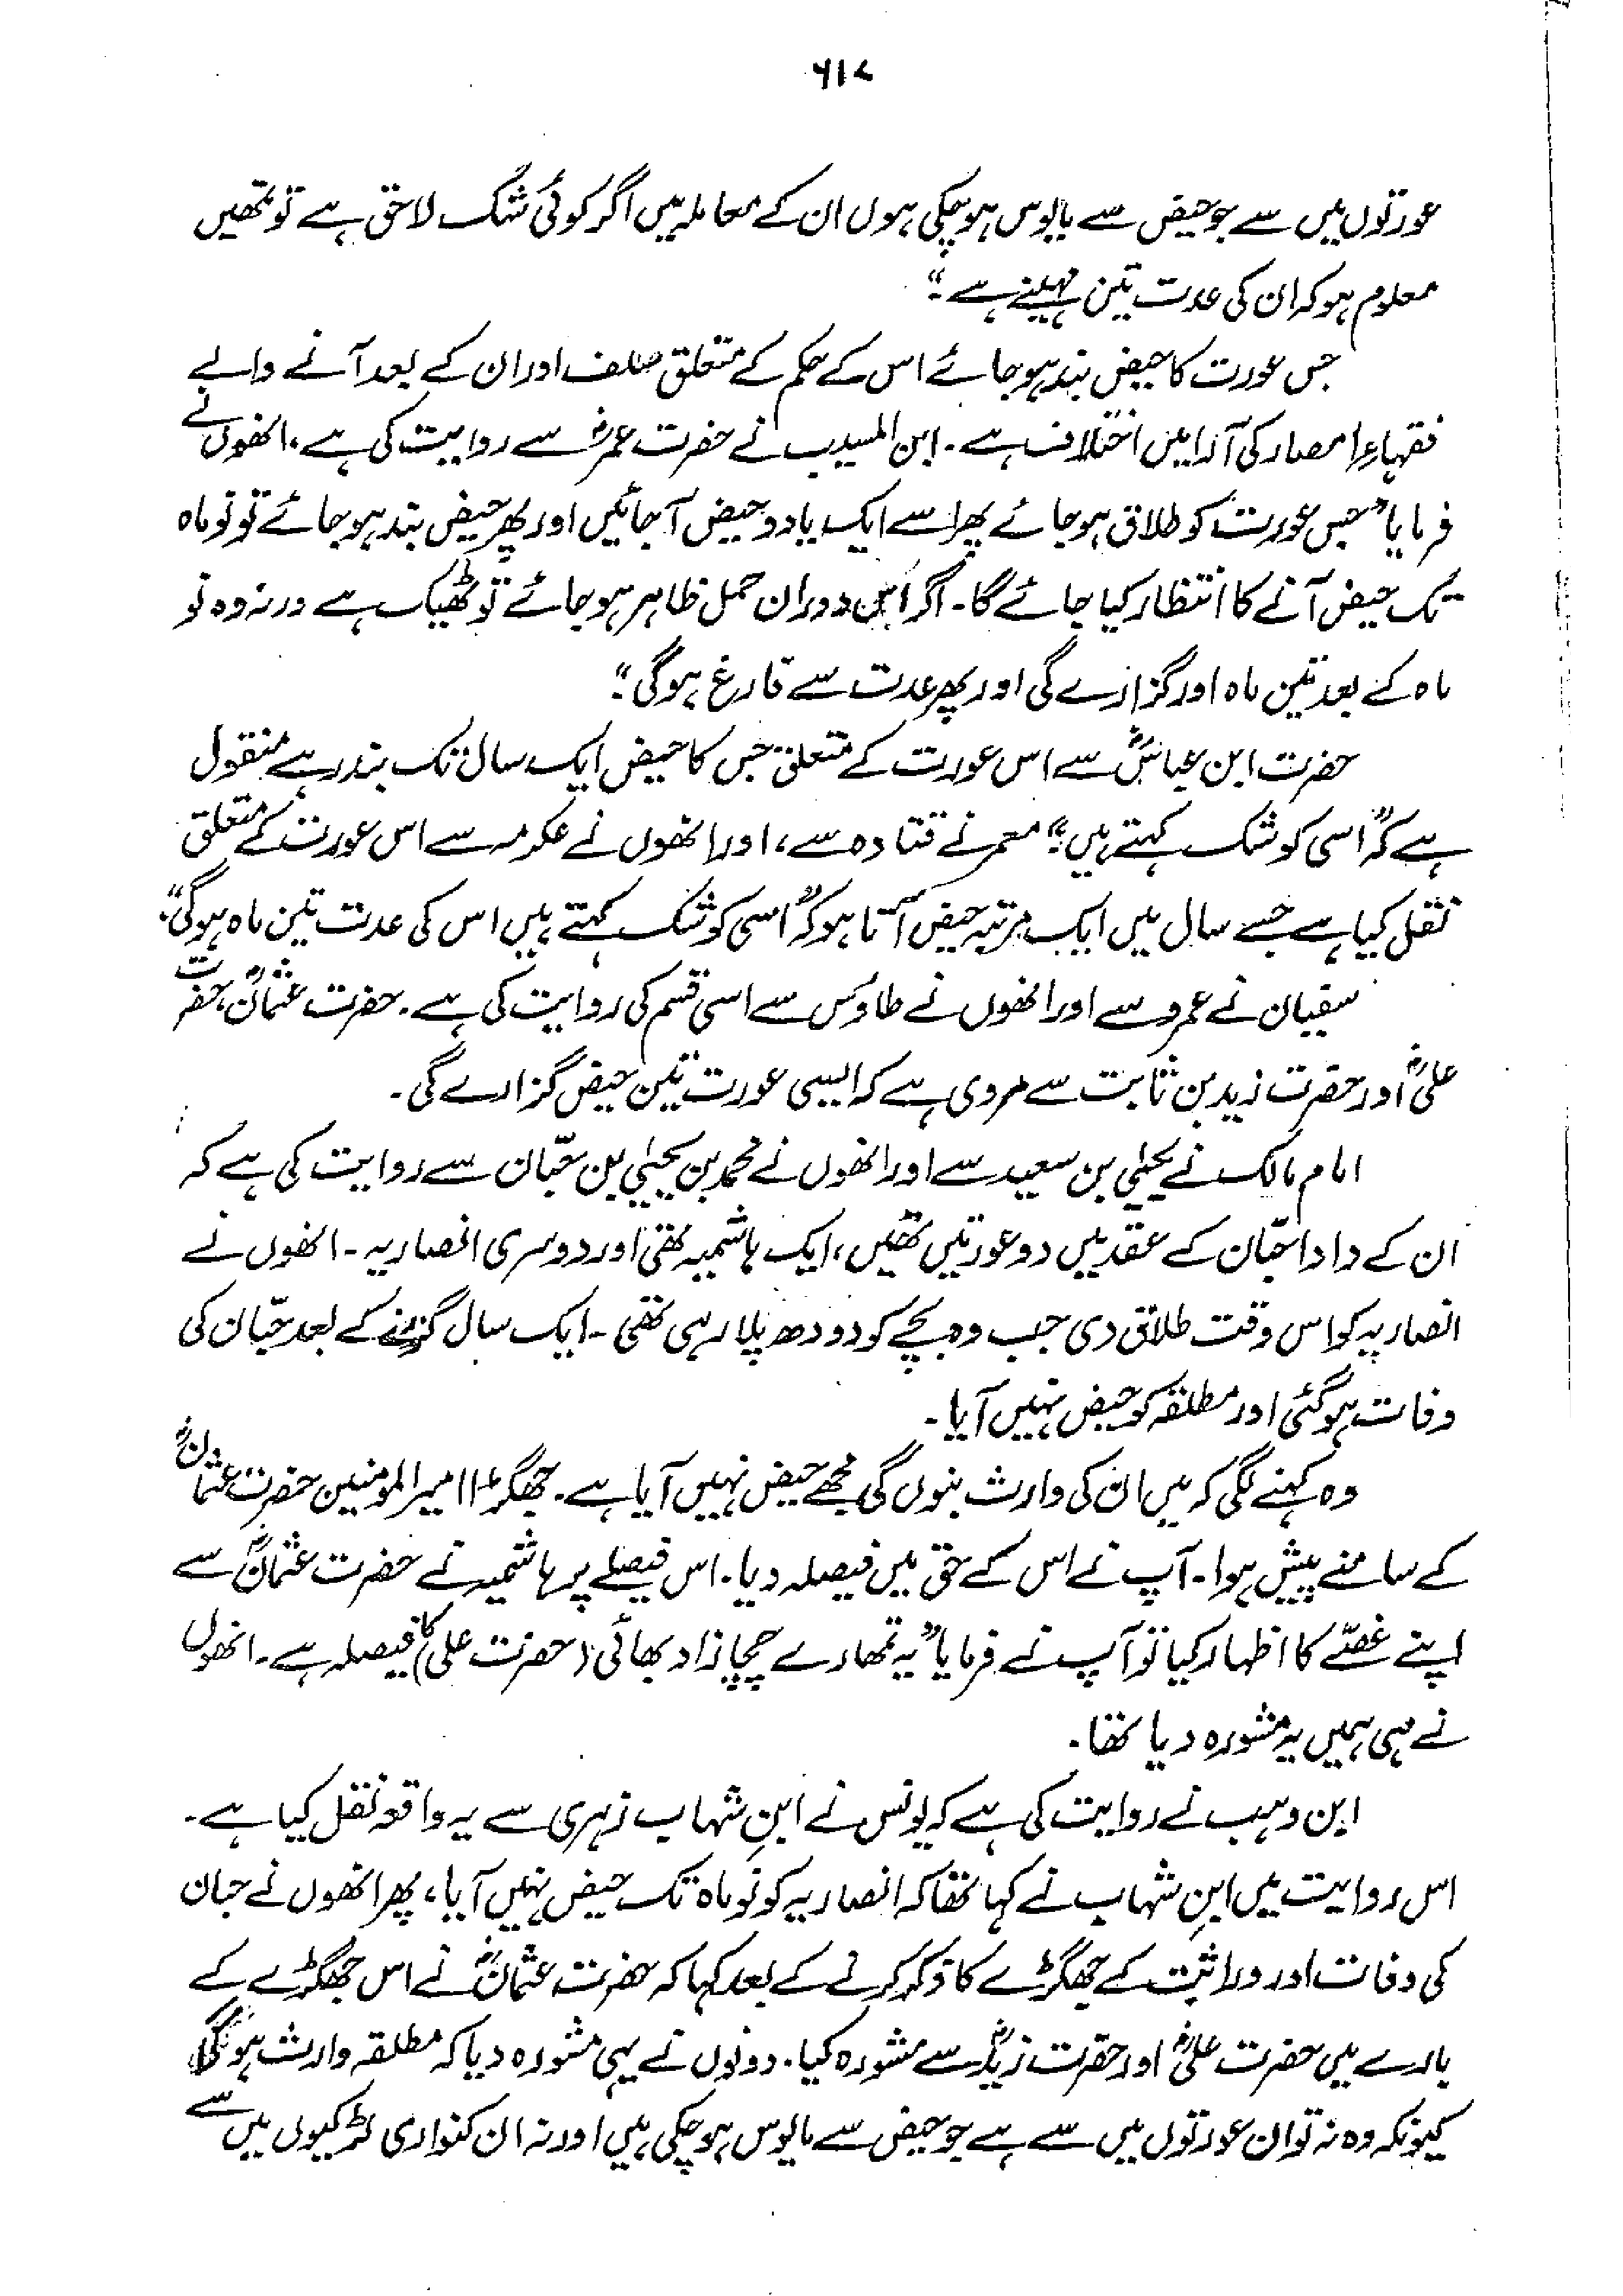 ۶۱۷
عورتوں میں سے جو حیض سے مایوس ہوچکی ہوں ان کے معاملہ میں اگر کوئی شک لاحق ہے تو تمھیں
معلوم ہو کہ ان کی عدت تین مہینے ہے"۔
جس عورت کا حیض بند ہوجائے اس کے حکم کے متعلق سلف اور ان کے بعد آنے والے
فقہاءِ امصار کی آرا میں اختلاف ہے۔ ابن المسیب نے حضرت عمرؓ سے روایت کی ہے، انھوں نے
فرمایا "جس عورت کو طلاق ہوجائے پھر اسے ایک یا دو حیض آجائیں اور پھر حیض بند ہوجائے تو نو ماہ
تک حیض آنے کا انتظار کیا جائے گا۔ اگر اس دوران حمل ظاہر ہوجائے تو ٹھیک ہے ورنہ وہ نو
ماہ کے بعد تین ماہ اور گزارے گی اور پھر عدت سے فارغ ہوگی"۔
حضرت ابن عباسؓ سے اس عورت کے متعلق جس کا حیض ایک سال تک بند رہے منقول
ہے کہ "اسی کو شک کہتے ہیں"۔ معمر نے قتادہ سے، اور انھوں نے عکرمہ سے اس عورت کے متعلق
نقل کیا ہے جسے سال میں ایک مرتبہ حیض آتا ہو کہ "اسی کو شک کہتے ہیں اس کی عدت تین ماہ ہوگی"۔
سفیان نے عمرو سے اور انھوں نے طاؤس سے اسی قسم کی روایت کی ہے۔ حضرت عثمانؓ، حضرت
علیؓ اور حضرت زید بن ثابت سے مروی ہے کہ ایسی عورت تین حیض گزارے گی۔
امام مالک نے یحییٰ بن سعید سے اور انھوں نے محمد بن یحییٰ بن حبّان سے روایت کی ہے کہ
ان کے دادا حبّان کے عقد میں دو عورتیں تھیں، ایک ہاشمیہ تھی اور دوسری انصاریہ۔ انھوں نے
انصاریہ کو اس وقت طلاق دی جب وہ بچے کو دودھ پلا رہی تھی۔ ایک سال گزرنے کے بعد حبّان کی
وفات ہوگئی اور مطلقہ کو حیض نہیں آیا۔
وہ کہنے لگی کہ میں ان کی وارث بنوں گی مجھے حیض نہیں آیا ہے۔ جھگڑا امیرالمومنین حضرت عثمانؓ
کے سامنے پیش ہوا۔ آپ نے اس کے حق میں فیصلہ دیا۔ اس فیصلے پر ہاشمیہ نے حضرت عثمانؓ سے
اپنے غصّے کا اظہار کیا تو آپ نے فرمایا "یہ تمھارے چچا زاد بھائی (حضرت علی) کا فیصلہ ہے۔ انھوں
نے ہی ہمیں یہ مشورہ دیا تھا۔
ابن وہب نے روایت کی ہے کہ یونس نے ابنِ شہاب زہری سے یہ واقعہ نقل کیا ہے۔
اس روایت میں ابنِ شہاب نے کہا تھا کہ انصاریہ کو نو ماہ تک حیض نہیں آیا، پھر انھوں نے حبان
کی وفات اور وراثت کے جھگڑے کا ذکر کرنے کے بعد کہا کہ حضرت عثمانؓ نے اس جھگڑے کے
بارے میں حضرت علیؓ اور حضرت زیدؓ سے مشورہ کیا۔ دونوں نے یہی مشورہ دیا کہ مطلقہ وارث ہوگی
کیونکہ وہ نہ تو ان عورتوں میں سے ہے جو حیض سے مایوس ہوچکی ہیں اور نہ ان کنواری لڑکیوں میں سے